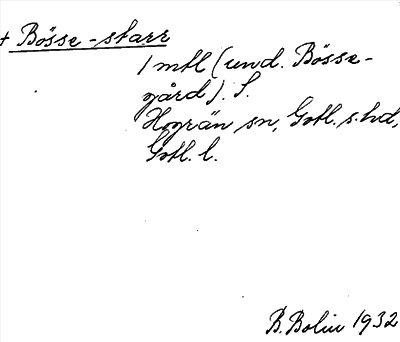 + Bösse-starr
1 mtl (und. Bösse-
gård). S.
Hogrän sn, Gotl. s. hd,
Gotl. l.
B. Bolin 1932